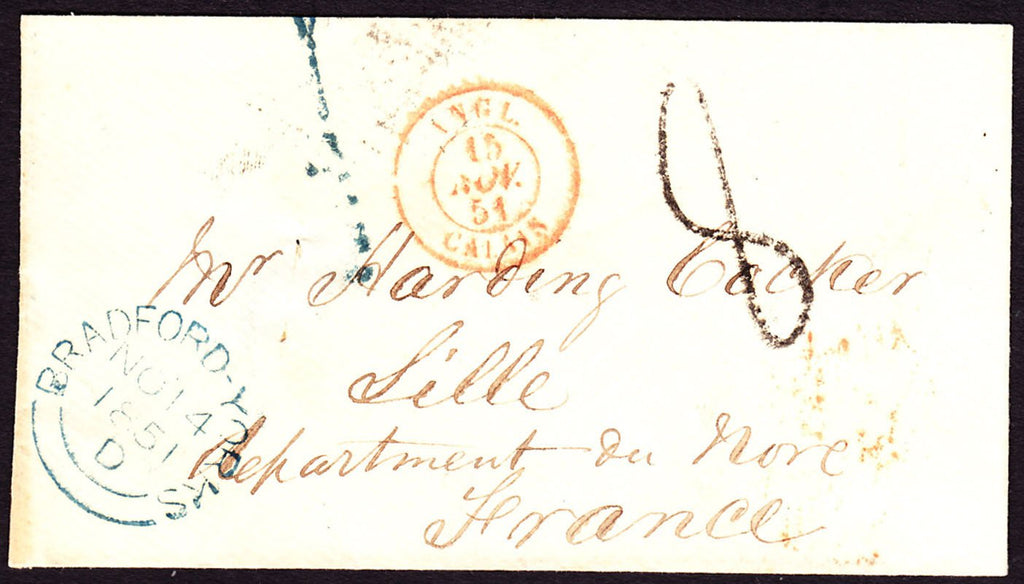 ANGL.
15
NOV.
51
CALAIS
8
Mr Harding Cocker
Lille
Department du Nore
France
BRADFORD-YORKS
NO 14
1851
D